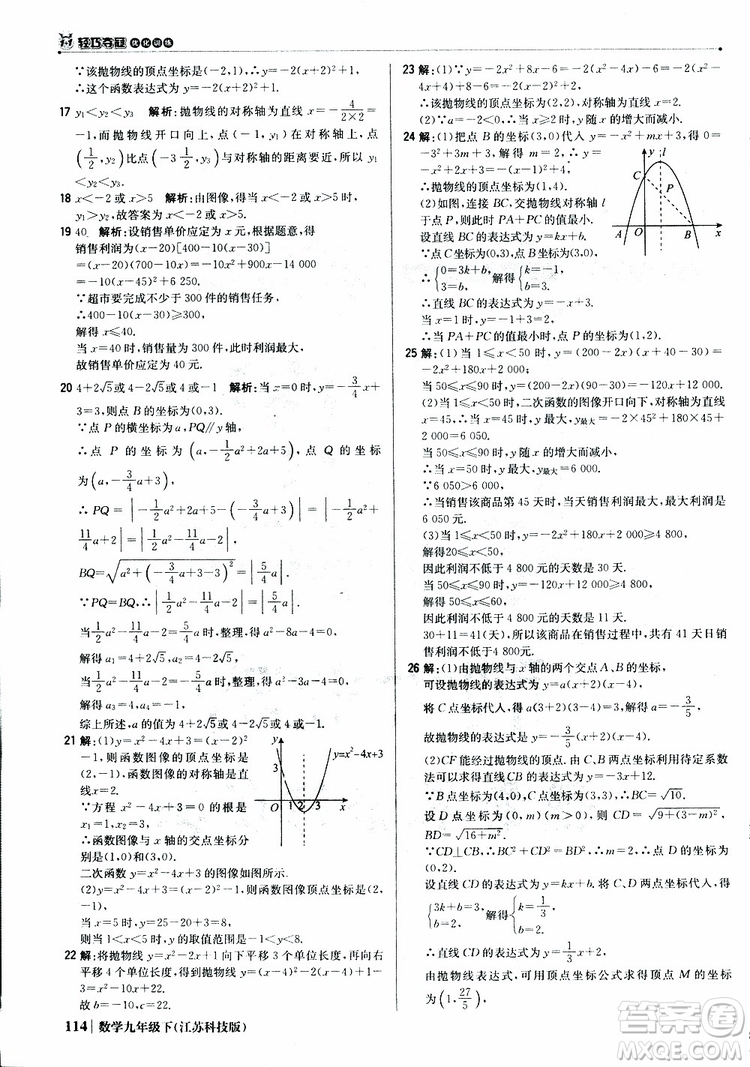 轻巧夺冠 优化训练
∵该抛物线的顶点坐标是(-2,1),∴y=-2(x+2)²+1.
∴这个函数表达式为y=-2(x+2)²+1.
17 y₁<y₂<y₃ 解析:抛物线的对称轴为直线 x=-4/(2×2)=
-1,而抛物线开口向上,∴点(-3,y₃)到对称轴的距离最远,
(1/2,y₂)比点(-3 1/2,y₃)与对称轴的距离要近,所以 y₁
<y₂<y₃.
18 x<-2或x>5 解析:由图像,得当x<-2或x>5时,
y₂>y₁,故答案为x<-2或x>5.
19 40 解析:设销售单价应定为 x 元,根据题意,得
销售利润为(x-20)[400-10(x-30)]
=(x-20)(700-10x)=-10x²+900x-14 000
=-10(x-45)²+6 250.
∵超市要完成不少于300件的销售任务,
∴400-10(x-30)≥300,
解得 x≤40.
∴当 x=40时,此时利润最大,
故销售单价应定为40元.
20 4+2√5或4-2√5或4或-1 解析:当x=0时,y=-3/4x+
3=3,则点B的坐标为(0,3).
∵点P的横坐标为a,PQ∥y轴,
∴点 P 的坐标为(a,-1/2a²+2a+5),点 Q 的坐标
为(a,-3/4a+3),
∴PQ=|-1/2a²+2a+5-(-3/4a+3)|=|-1/2a²+
11/4a+2|=|1/2a²-11/4a-2|,
BQ=√(a²+(-3/4a+3-3)²)=|5/4a|.
∵PQ=BQ,∴|1/2a²-11/4a-2|=|5/4a|.
当1/2a²-11/4a-2=5/4a时,整理,得a²-8a-4=0,
解得 a₁=4+2√5,a₂=4-2√5;
当1/2a²-11/4a-2=-5/4a时,整理,得 a²-3a-4=0,
解得 a₃=4,a₄=-1.
综上所述,a的值为4+2√5或4-2√5或4或-1.
21 解:(1)y=x²-4x+3=(x-2)²-1,
则函数图像的顶点坐标为
(2,-1),函数图像的对称轴为
直线 x=2.
∵方程 x²-4x+3=0 的根是
x₁=1,x₂=3,
∴函数图像与 x 轴的交点坐标分别
为(1,0)和(3,0).
二次函数 y=x²-4x+3的图像如图所示.
(2)y=x²-4x+3=(x-2)²-1,函数图像顶点坐标为
(2,-1),
当x=5时,y=25-20+3=8,
∴当1<x<5时,y的取值范围为-1≤y<8.
22 解:将抛物线 y=x²+1向下平移3个单位长度,再向右
平移4个单位长度,得 y=(x-4)²-2=x²-8x+14,
故 b=-8,c=14.
y x O 1 2 3 3 y=x²-4x+3
23 解:(1)∵y=-2x²+8x-6=-2(x-2)²+2,
∴该抛物线的顶点坐标为(2,2),对称轴为直线 x=2.
(2)∵a=-2<0,∴当x>2时,y随 x的增大而减小.
24 解:(1)把点 B 的坐标(3,0)代入 y=-x²+mx+3,得0=
-3²+3m+3,解得 m=2,∴y=-x²+2x+3=-(x-1)²+4,
∴抛物线的顶点坐标为(1,4).
(2)如图,连接 BC,交抛物线对称轴 l
于点P,此时 PA+PC 的值最小.
设直线 BC 的表达式为 y=kx+b.
∵点C坐标为(0,3),点B坐标为(3,0),
∴{0=3k+b,3=b, 解得{k=-1,b=3.
∴直线 BC的表达式为 y=-x+3.
当 x=1时,y=-1+3=2,
∴当 PA+PC的值最小时,点P的坐标为(1,2).
y l C P A O B x
25 解:(1)当1≤x<50时,y=(200-2x)(x+40-30)=
-2x²+180x+2 000;
当50≤x≤90时,y=(200-2x)(90-30)=-120x+12 000.
(2)当1≤x<50时,二次函数的图像开口向下,对称轴为直线
x=45,∴当 x=45时,y最大,y最大=-2×45²+180×45+
2 000=6 050.
当50≤x≤90时,y随 x的增大而减小,
∴当 x=50时,y最大=6 000.
∵6 050>6 000,
∴当销售该商品第45天时,当天销售利润最大,最大利润是
6 050元.
(3)当1≤x<50时,y=-2x²+180x+2 000≥4 800,
解得20≤x<50,
因此利润不低于4 800元的天数是30天.
当50≤x≤90时,y=-120x+12 000≥4 800,
解得50≤x≤60,
因此利润不低于4 800元的天数是11天.
30+11=41(天),所以该商品在销售过程中,共41天每天销售
利润不低于4 800元.
26 解:(1)由抛物线与 x轴的两个交点 A,B的坐标,
可设抛物线的表达式为y=a(x-2)(x-4),
将 C点坐标代入,得a(3-2)(3-4)=3/5,解得a=-3/5,
故抛物线的表达式为y=-3/5(x-2)(x-4).
(2)CF能经过抛物线的顶点.由B,C两点坐标,利用待定系数
法可以求得直线BC的表达式为y=-3x+12.
∵B点坐标为(4,0),C点坐标为(3,3),∴BC=√10.
设 D 点坐标为(0,m),则 CD=√(9+(3-m)²),
BD=√(16+m²).
∵CD⊥CB,∴CD²+BC²=BD²,解得 m=2.
设直线 CD 的表达式为 y=kx+b,把点C,D的坐标代入,得
{3k+b=3,b=2, 解得{k=1/3,b=2.
∴直线 CD 的表达式为 y=1/3x+2,
由抛物线表达式,可用顶点坐标公式求得顶点 M 的坐标为
(1,27/5),
114 数学九年级下(江苏科技版)
答案圈